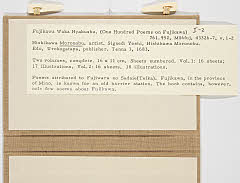 Fujikawa Waka Hyakushu, (One Hundred Poems on Fujikawa) J-2
761.952, M86hj, v.1-2
Hishikawa Moronobu, artist, Signed: Yoshi, Hishikawa Moronobu.
Edo, publisher, Tenna 3, 1683.
Two volumes, complete, 16 x 11 cm, Sheets numbered. Vol.1: 16 sheets;
17 illustrations, Vol.2: 16 sheets, 18 illustrations.
Poems attributed to Fujiwara no Sadaie(Teika). Fujikawa, in the province
of Mino, is known for an old barrier station. The book contains, however,
only few poems about Fujikawa.